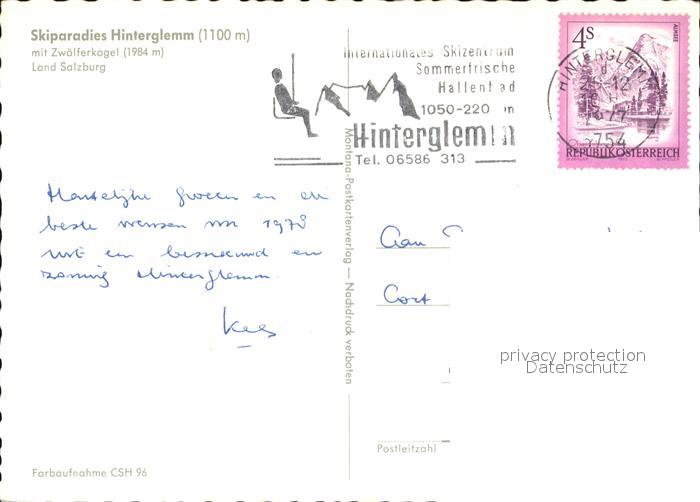 Skiparadies Hinterglemm (1100 m)
mit Zwölferkogel (1984 m)
Land Salzburg
Internationales Skizentrum
Sommerfrische
Hallenbad
1050-220 m
Hinterglemm
Tel. 06586 313
4S
ALMSEE
HINTERGLEMM
5754
REPUBLIK ÖSTERREICH
Montana-Postkartenverlag — Nachdruck verboten
Hartelijke groeten en de
beste wensen voor 1978
uit een besneeuwd en
zonnig Hinterglemm.
Kees
Aan
Cort
privacy protection
Datenschutz
Postleitzahl
Farbaufnahme CSH 96